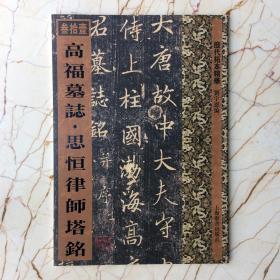 叁拾壹
高福墓誌·思恒律師塔銘
大唐故中大夫守
侍上柱國渤海高
君墓誌銘 并序